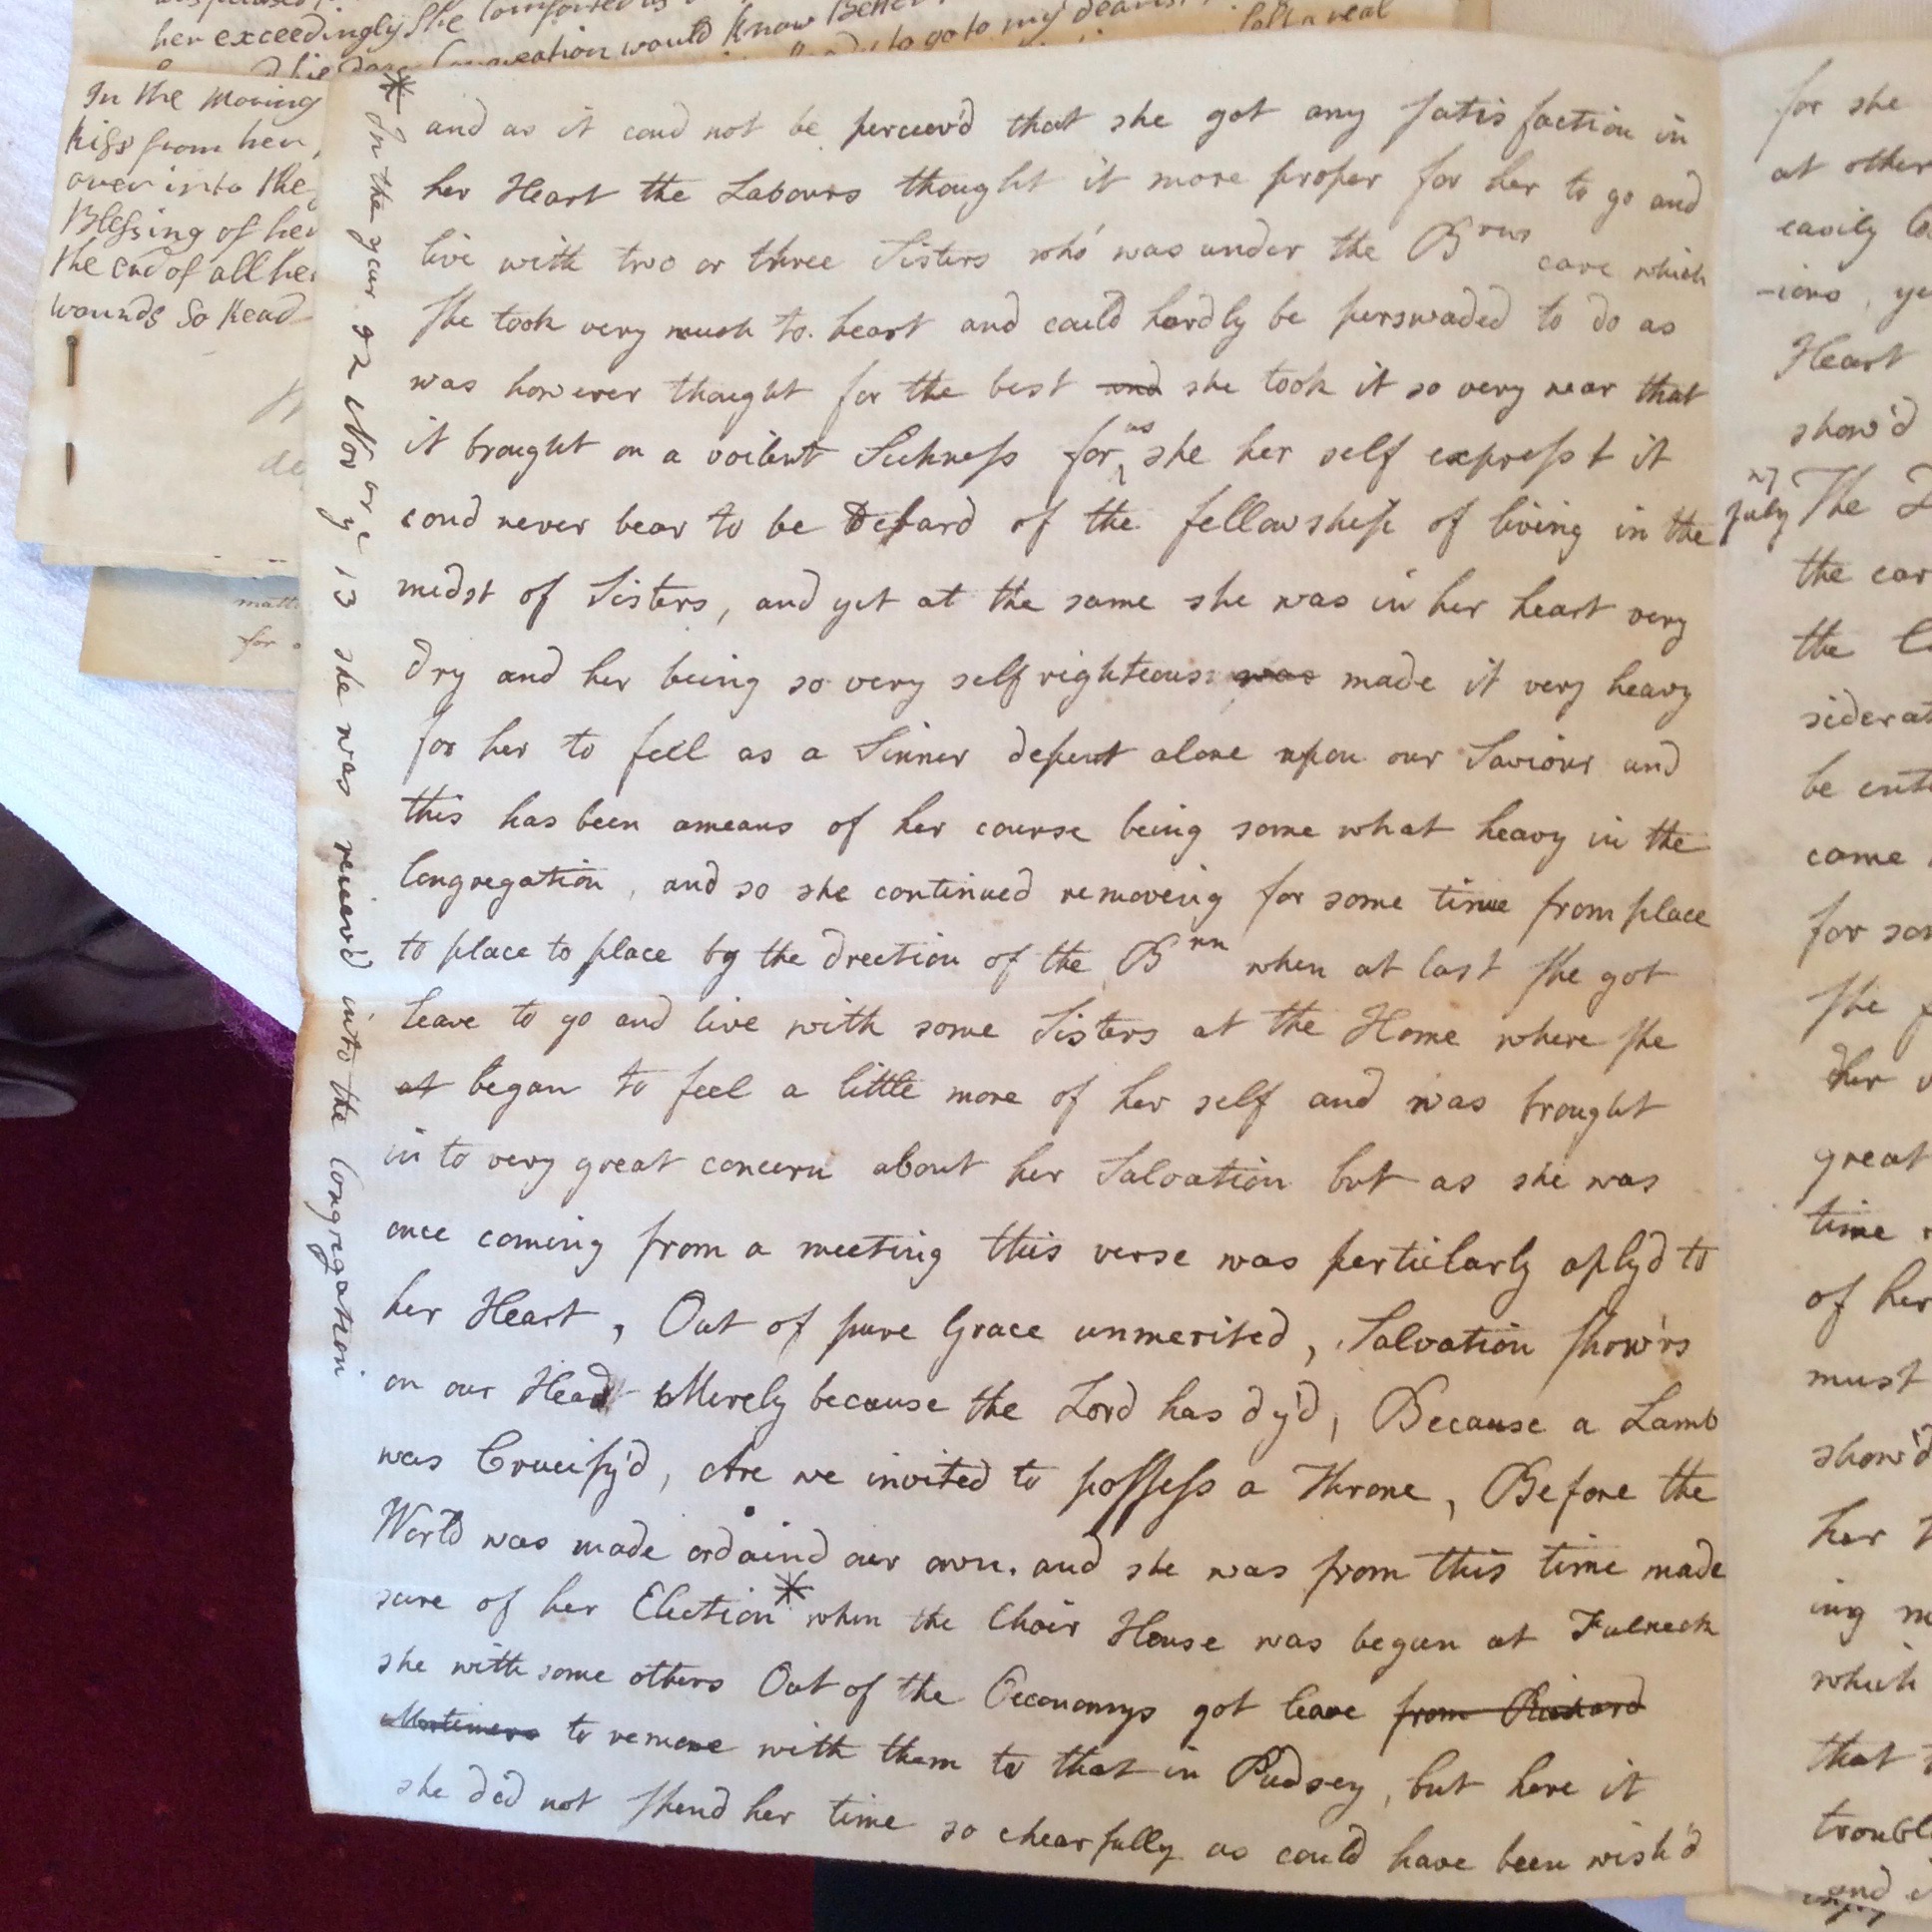 her exceedingly she comforted
would know Better
to go to my
In the Moving
Kiss from her,
over into the
Blessing of her
the end of all her
wounds So Read
matt
for
* In the year 92 Nov ye 13 she was reciev'd into the Congregation
and as it coud not be perceiv'd that she got any satis faction in
her Heart the Labours thought it more proper for her to go and
live with two or three Sisters who was under the Brns care which
She took very much to heart and could hardly be perswaded to do as
was however thought for the best and she took it so very near that
it brought on a voilent Sickness for as she her self exprest it
coud never bear to be Debard of the fellowship of living in the
midst of Sisters, and yet at the same she was in her heart very
dry and her being so very self righteous was made it very heavy
for her to feel as a Sinner depent alone upon our Saviour and
this has been ameans of her course being some what heavy in the
Congregation, and so she continued removeing for some time from place
to place to place by the drection of the Brn when at last she got
leave to go and live with some Sisters at the Home where she
at began to feel a little more of her self and was brought
in to very great concern about her Salvation but as she was
once coming from a meeting this verse was perticlarly aply'd to
her Heart, Out of pure Grace unmerited, Salvation show'rs
on our Head Merely because the Lord has dy'd, Because a Lamb
was Crucify'd, Are we invited to possess a Throne, Before the
World was made ordaind our own. and she was from this time made
sure of her Election * when the Choir House was begun at Fulneck
she with some others Out of the Oeconomys got leave from Richard
Mortimers to remove with them to that in Pudsey, but here it
she did not spend her time so chearfully as could have been wish'd
for she
at other
easily
-ions, ye
Heart
show'd
July The
the car
the
siderat
be ente
came
for som
she
her
great
time
of her
must
show'd
her
ing
which
that
troubl
and